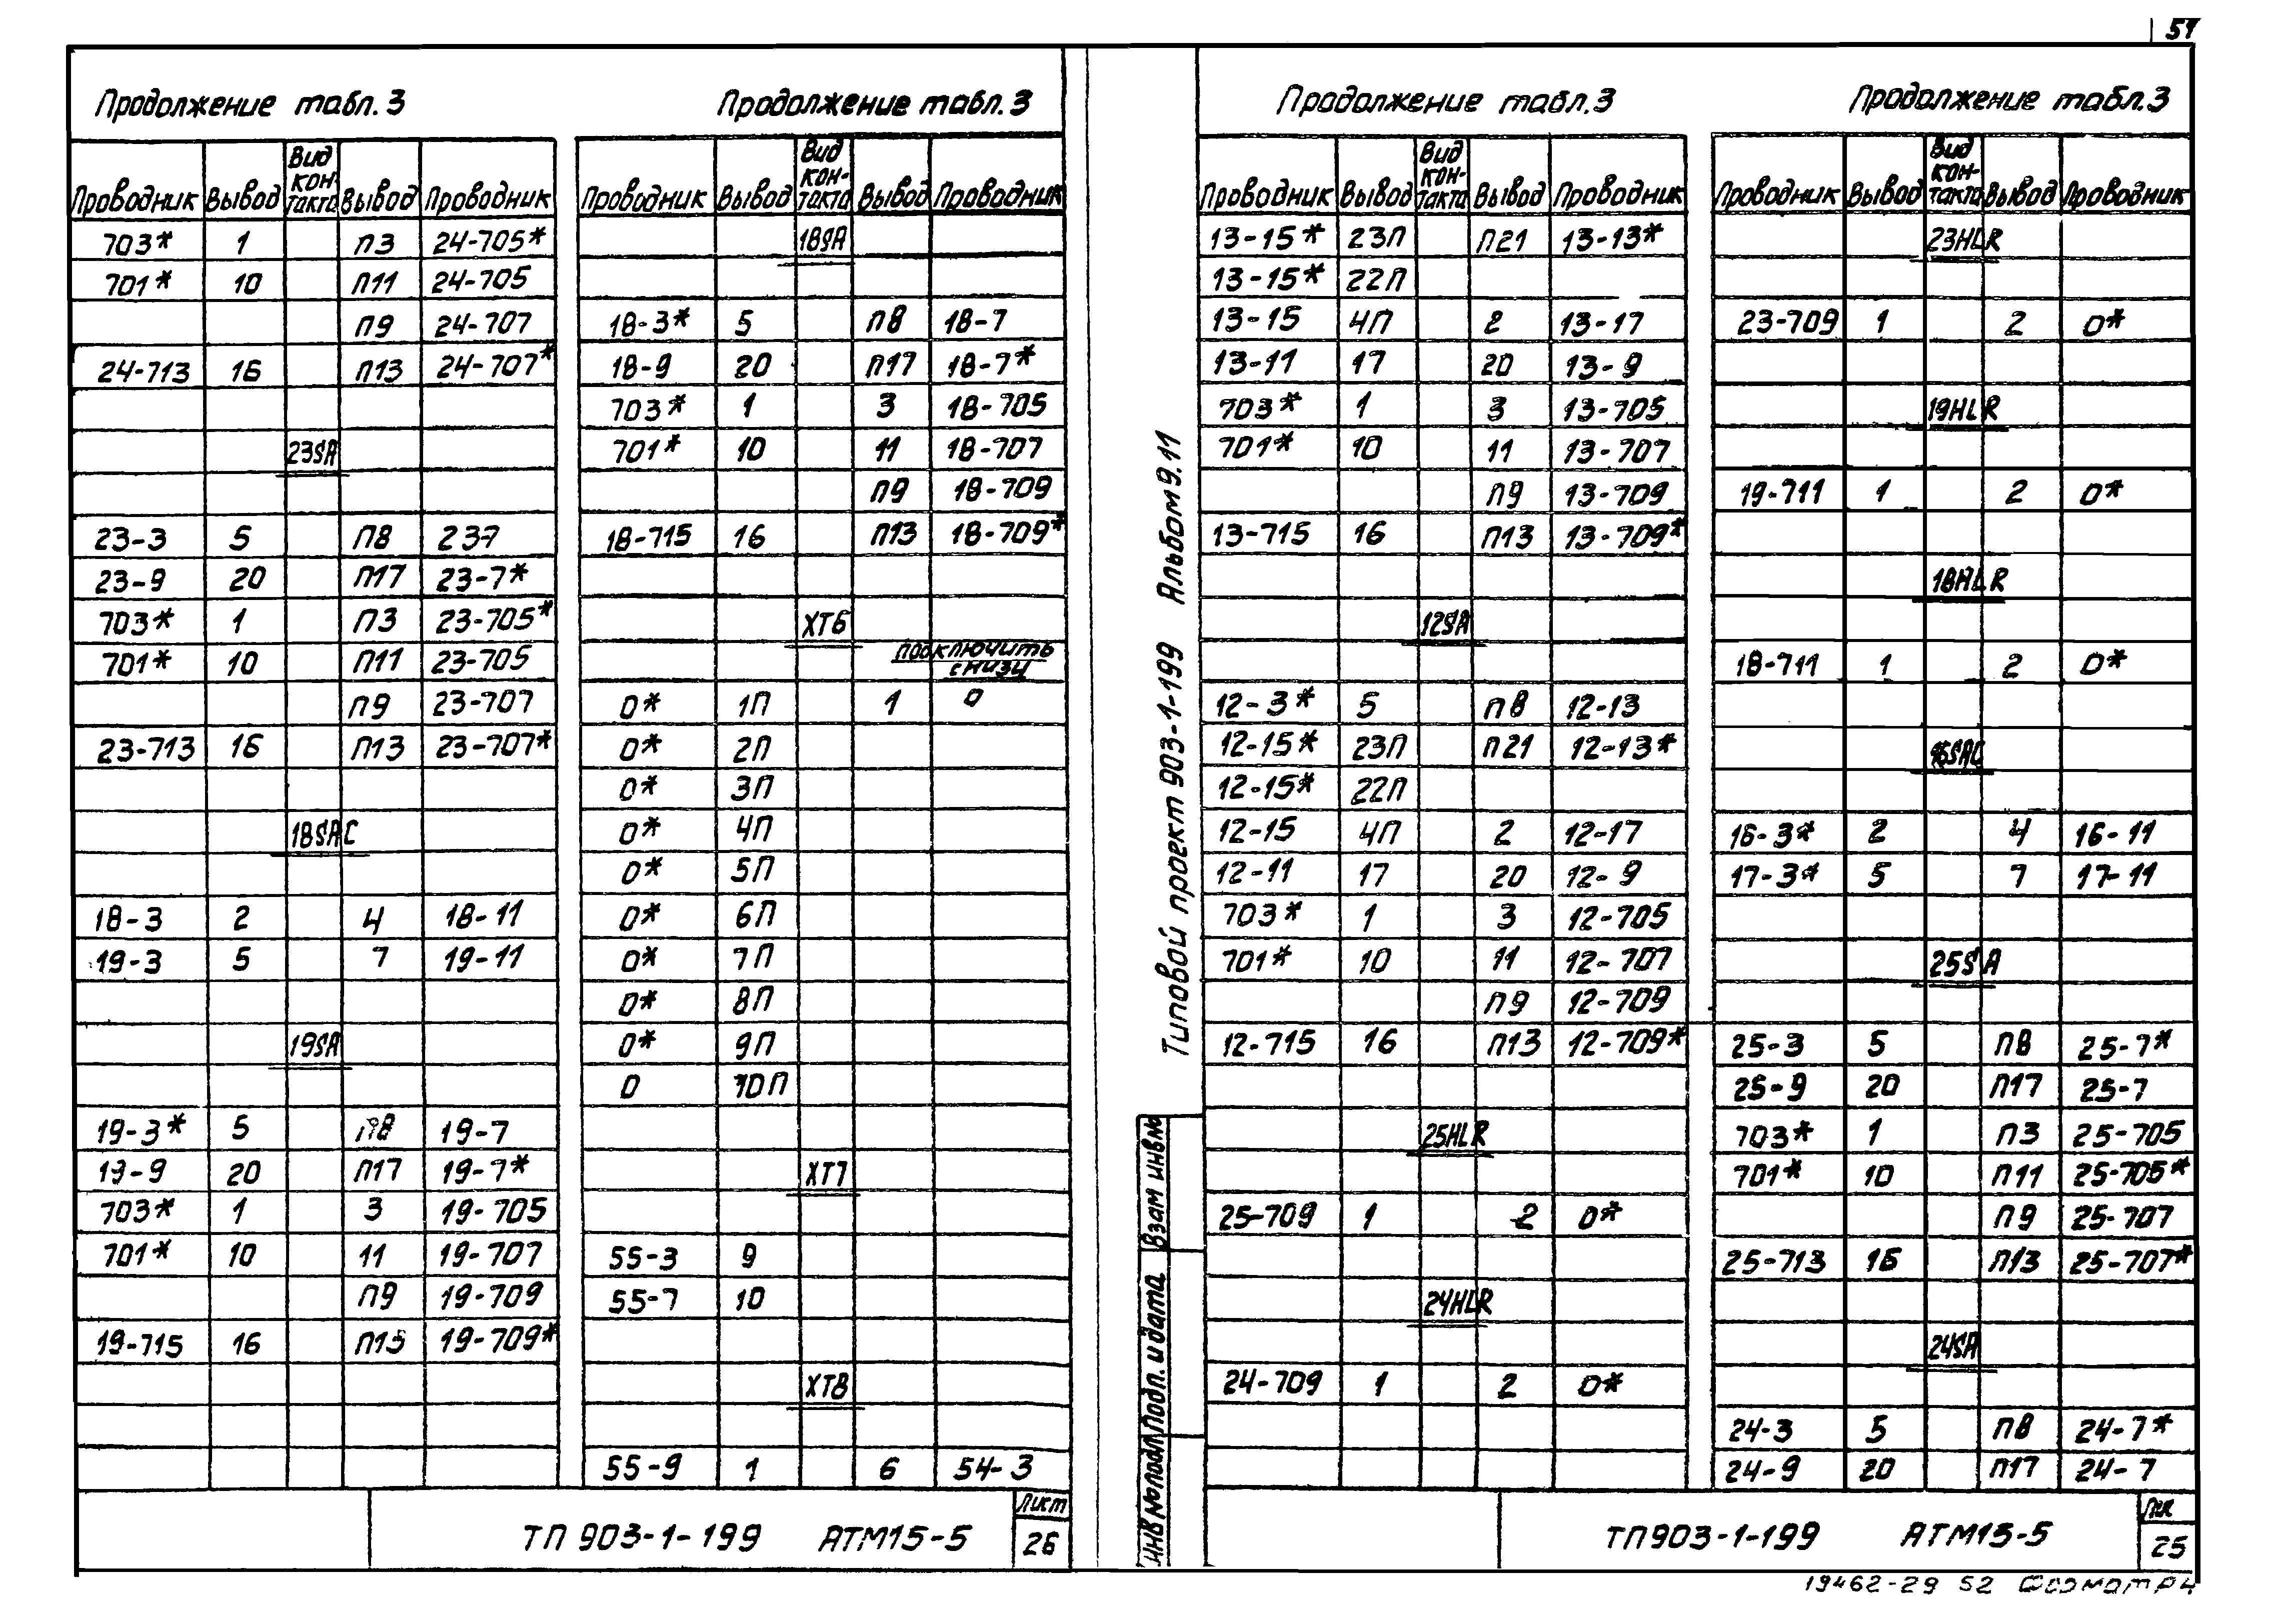 51
Продолжение табл.3
Проводник Вывод Вид контакта Вывод Проводник
703* 1 П3 24-705*
701* 10 П11 24-705
П9 24-707
24-713 16 П13 24-707*
23SA
23-3 5 П8 237
23-9 20 П17 23-7*
703* 1 П3 23-705*
701* 10 П11 23-705
П9 23-707
23-713 16 П13 23-707*
18SAC
18-3 2 4 18-11
19-3 5 7 19-11
19SA
19-3* 5 П8 19-7
19-9 20 П17 19-7*
703* 1 3 19-705
701* 10 11 19-707
П9 19-709
19-715 16 П13 19-709*
Продолжение табл.3
Проводник Вывод Вид кон-такта Вывод Проводник
18SA
18-3* 5 П8 18-7
18-9 20 П17 18-7*
703* 1 3 18-705
701* 10 11 18-707
П9 18-709
18-715 16 П13 18-709*
XT6
подключить
снизу
0* 1П 1 0
0* 2П
0* 3П
0* 4П
0* 5П
0* 6П
0* 7П
0* 8П
0* 9П
0 10П
XT7
55-3 9
55-7 10
XT8
55-9 1 6 54-3
ТП 903-1-199 АТМ15-5
Лист
26
Типовой проект 903-1-199 Альбом 9.11
Взам инв№
Подп. и дата
Инв № подл
Продолжение табл.3
Проводник Вывод Вид кон-такта Вывод Проводник
13-15* 23П П21 13-13*
13-15* 22П
13-15 4П 2 13-17
13-11 17 20 13-9
703* 1 3 13-705
701* 10 11 13-707
П9 13-709
13-715 16 П13 13-709*
12SA
12-3* 5 П8 12-13
12-15* 23П П21 12-13*
12-15* 22П
12-15 4П 2 12-17
12-11 17 20 12-9
703* 1 3 12-705
701* 10 11 12-707
П9 12-709
12-715 16 П13 12-709*
25HLR
25-709 1 2 0*
24HLR
24-709 1 2 0*
Продолжение табл.3
Проводник Вывод Вид кон-такта Вывод Проводник
23HLR
23-709 1 2 0*
19HLR
19-711 1 2 0*
18HLR
18-711 1 2 0*
16SAC
16-3* 2 4 16-11
17-3* 5 7 17-11
25SA
25-3 5 П8 25-7*
25-9 20 П17 25-7
703* 1 П3 25-705
701* 10 П11 25-705*
П9 25-707
25-713 16 П13 25-707*
24SA
24-3 5 П8 24-7*
24-9 20 П17 24-7
ТП903-1-199 АТМ15-5
25
19462-29 52 Формат А4